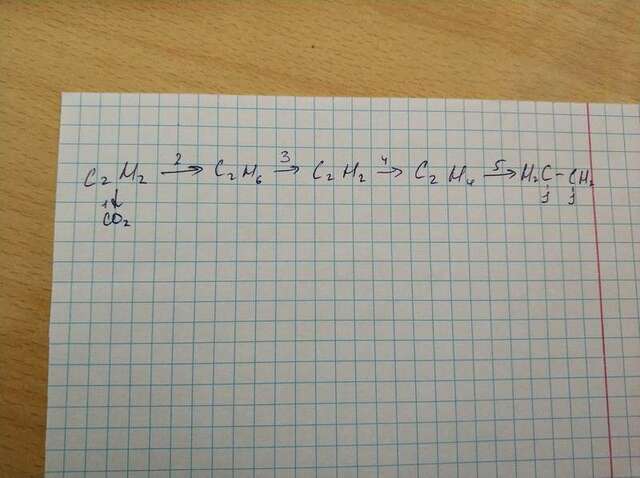 C₂H₂ →² C₂H₆ →³ C₂H₂ →⁴ C₂H₄ →⁵ H₂C - CH₂
1↓ J J
CO₂